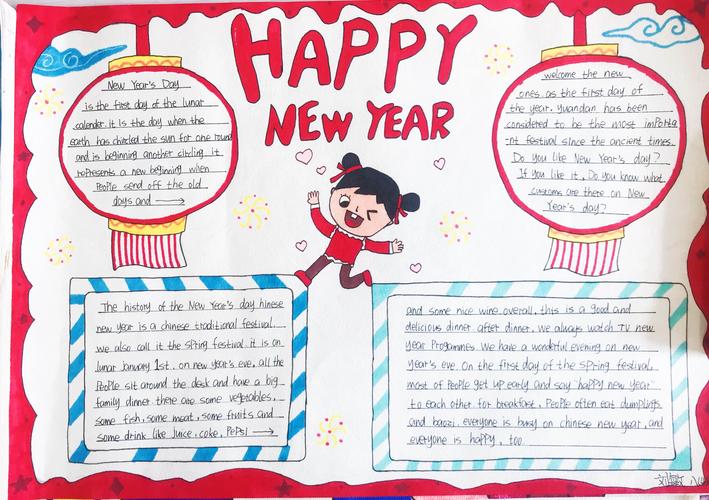 HAPPY
NEW YEAR
New Year's Day
is the first day of the lunar
calendar. it is the day when the
earth has circled the sun for one round
and is beginning another circling it
represents a new beginning when
People send off the old
days and →
welcome the new
ones. as the first day of
the year. Yuandan has been
considered to be the most importa
-nt festival since the ancient times.
Do you like New Year's day?
If you like it. Do you know what
customs are there on New
Year's day?
The history of the New Year's day hinese
new year is a chinese traditional festival.
we also call it the spring festival. it is on
lunar January 1st. on new year's eve, all the
People sit around the desk and have a big
family dinner. there are some vegetables,
some fish, some meat, some fruits and
some drink like Juice, coke, Pepsi →
and some nice wine. overall. this is a good and
delicious dinner after dinner, we always watch TV new
year Progammes. We have a wonderful evening on new
year's eve. On the first day of the spring festival,
most of People get up early and say "happy new year"
to each other for breakfast. People often eat dumplings
and baozi. everyone is busy on chinese new year, and
everyone is happy, too.